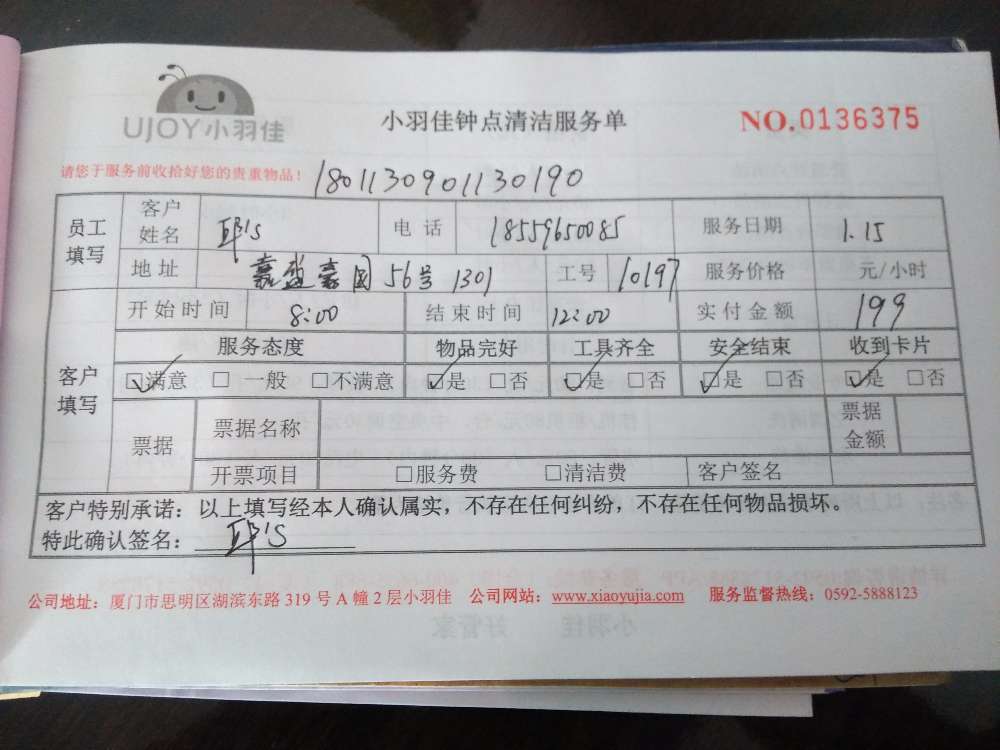 UJOY小羽佳
小羽佳钟点清洁服务单
NO.0136375
请您于服务前收拾好您的贵重物品！
1801130901130190
员工填写 客户姓名 邱's 电话 18559650085 服务日期 1.15
地址 嘉盛豪园56号1301 工号 10197 服务价格 元/小时
开始时间 8:00 结束时间 12:00 实付金额 199
客户填写 服务态度 物品完好 工具齐全 安全结束 收到卡片
☑满意 □一般 □不满意 ☑是 □否 ☑是 □否 ☑是 □否 ☑是 □否
票据 票据名称 票据金额
开票项目 □服务费 □清洁费 客户签名
客户特别承诺：以上填写经本人确认属实，不存在任何纠纷，不存在任何物品损坏。
特此确认签名：邱's
公司地址：厦门市思明区湖滨东路 319 号 A 幢 2 层小羽佳 公司网站：www.xiaoyujia.com 服务监督热线：0592-5888123